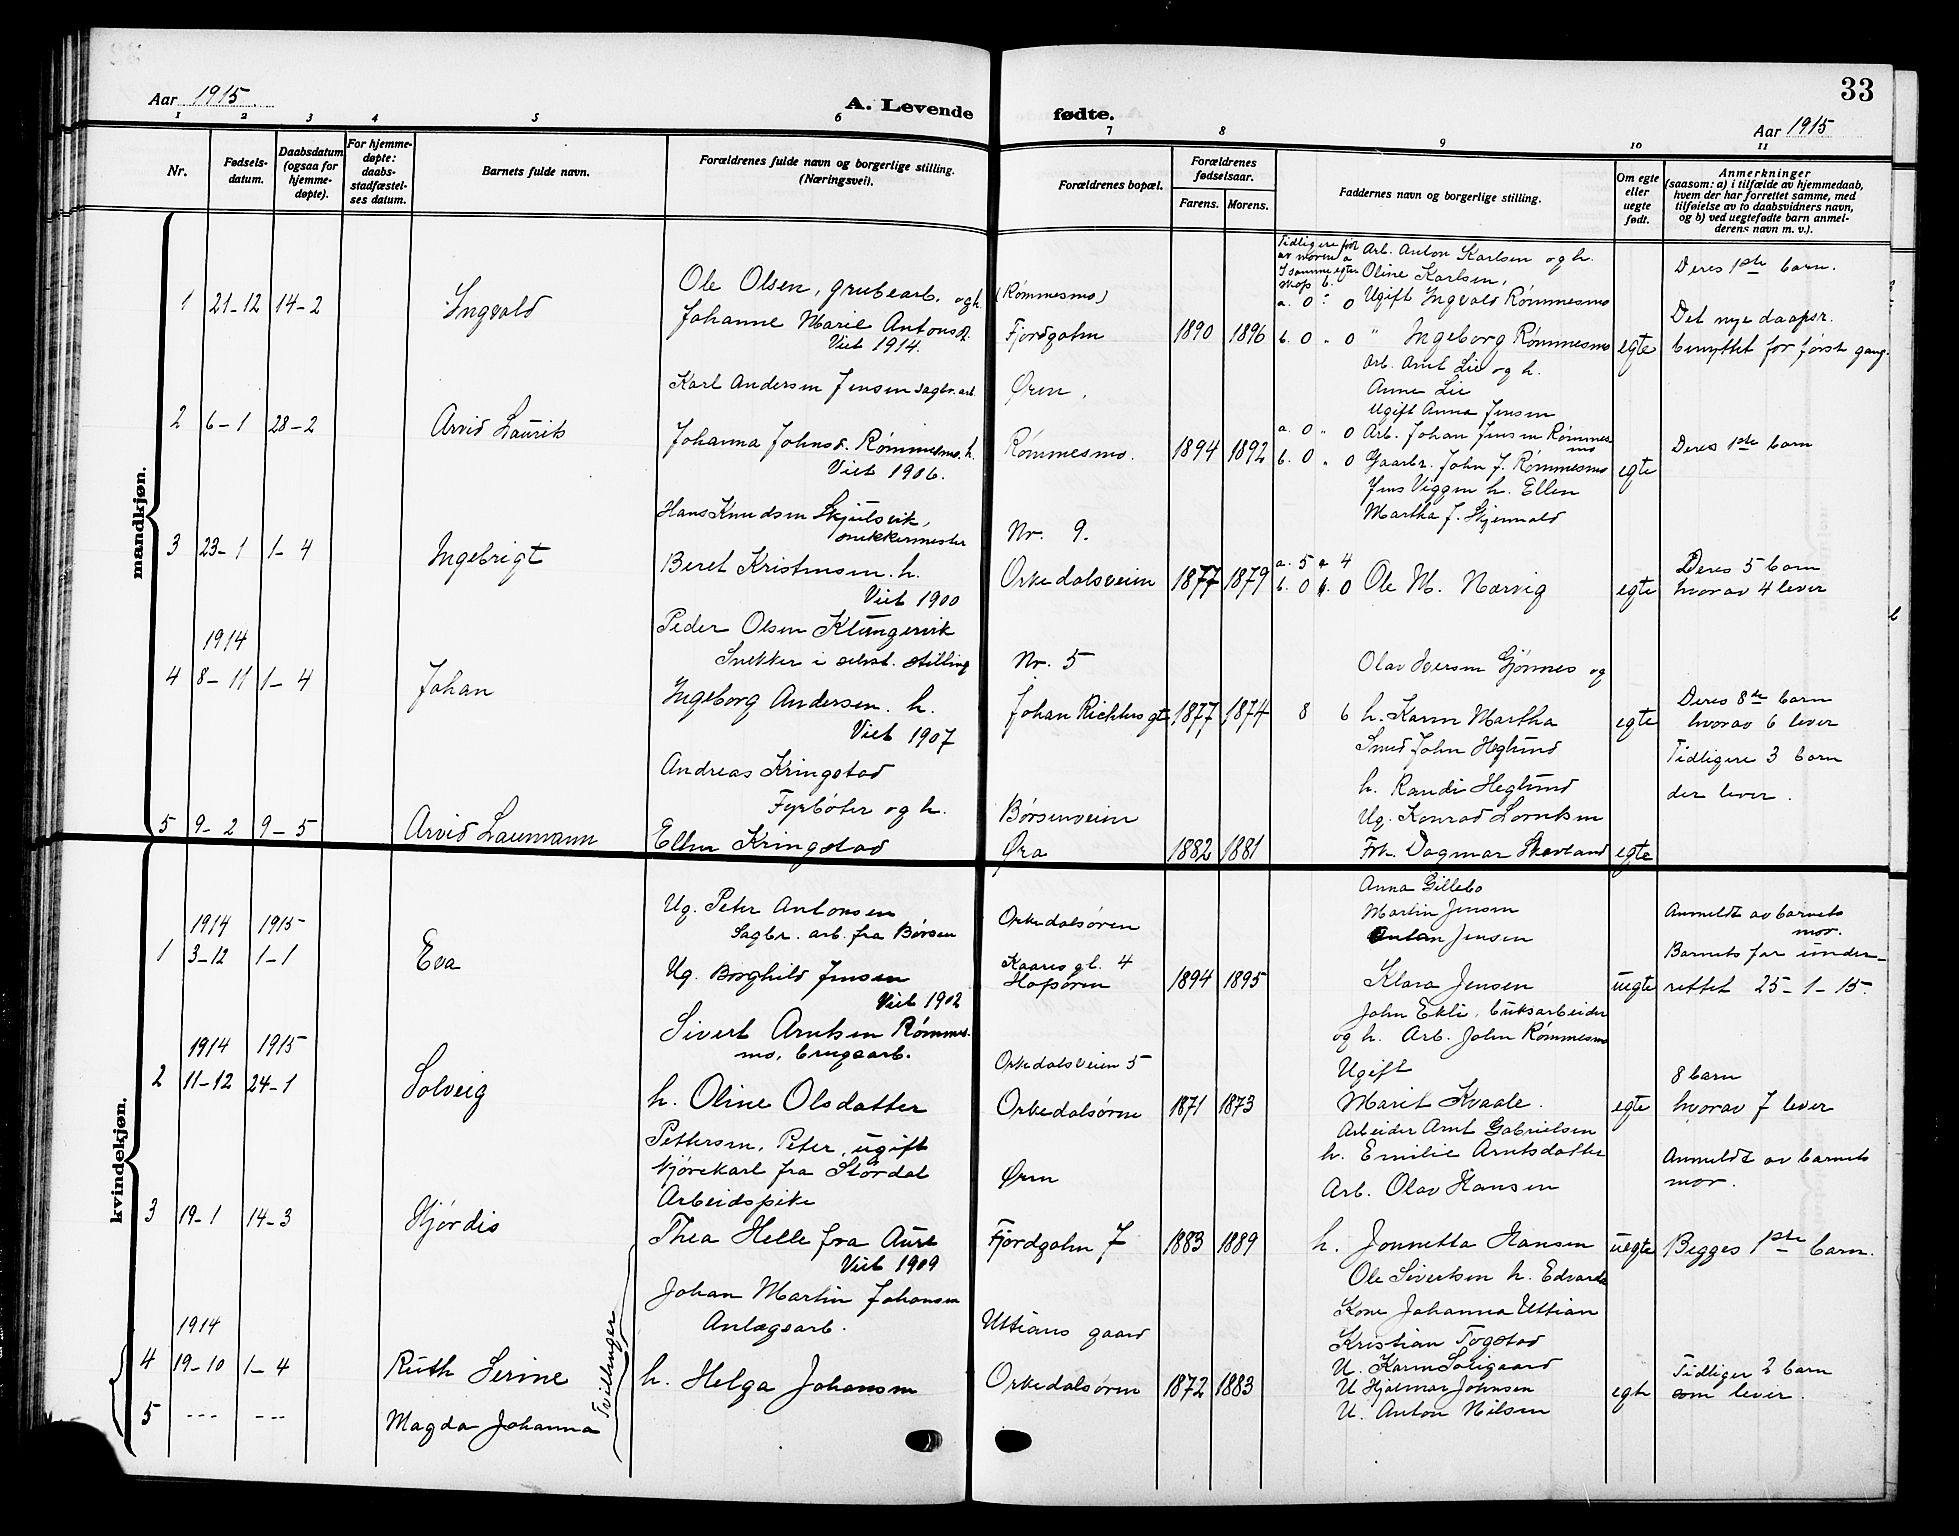 33
Aar 1915
A. Levende
fødte.
Aar 1915
1 2 3 4 5 6 7 8 9 10 11
Nr.
Fødsels-
datum.
Daabsdatum
(ogsaa for
hjemme-
døpte).
For hjemme-
døpte:
daabs-
stadfæstel-
ses datum.
Barnets fulde navn.
Forældrenes fulde navn og borgerlige stilling.
(Næringsvei).
Forældrenes bopæl.
Forældrenes
fødselsaar.
Farens. Morens.
Faddernes navn og borgerlige stilling.
Om egte
eller
uegte
født.
Anmerkninger
(saasom: a) i tilfælde av hjemmedaab,
hvem der har forrettet samme, med
tilføielse av to daabsvidners navn,
og b) ved uegtefødte barn anmel-
derens navn m. v.).
mandkjøn.
1 21-12 14-2 Ingvald
Ole Olsen, grubearb. og h.
Johanne Marie Antonsd.
Viet 1914.
(Rømmesmo)
Fjordgatn
1890 1896
Tidligere født
av moren a
I samme egte
skap b.
a. 0 " 0
b. 0 " 0
Arb. Anton Karlsen og h.
Oline Karlsen,
Ugift Ingvald Rømmesmo
" Ingeborg Rømmesmo
egte
Deres 1ste barn.
Det nye daapsr.
benyttet for først gang.
2 6-1 28-2 Arvid Laurits
Karl Andersen Jensen sagbr. arb.
Johanna Johnsd. Rømmesmo. h.
Viet 1906.
Øren,
Rømmesmo.
1894 1892
a. 0 " 0
b. 0 " 0
Arb. Arnt Lie og h.
Anne Lie
Ugift Anna Jensen
Arb. Johan Jensen Rømmes
mo
Gaarbr. John J. Rømmesmo
egte
Deres 1ste barn
3 23-1 1-4 Ingebrigt
Hans Knudsen Skjulsvik,
snekkermester
Beret Kristensen. h.
Viet 1900
Nr. 9.
Orkedalsveien
1877 1879
a. 5 a 4
b. 0 b. 0
Jens Viggen h. Ellen
Martha J. Skjenvald
Ole M. Nærvig
egte
Deres 5 barn
hvorav 4 lever
1914
4 8-11 1-4 Johan
Peder Olsen Klungervik
Snekker i selvst. stilling
Ingeborg Andersen. h.
Viet 1907
Nr. 5
Johan Richters gt
1877 1874
8 6
Olav Iversen Gjønnes og
h. Karen Martha
egte
Deres 8de barn
hvorav 6 lever
5 9-2 9-5 Arvid Laumann
Andreas Kringstad
Fyrbøter og h.
Ellen Kringstad
Børsenveien
Øra
1882 1881
Smed John Heglund
h. Randi Heglund
Ug. Konrad Lorntsen
Frk. Dagmar Skavland
egte
Tidligere 3 barn
der lever.
kvindekjøn.
1914 1915
1 3-12 1-1 Eva
Ug. Peter Antonsen
Sagbr. arb. fra Børsen
Ug. Borghild Jensen
Orkedalsøren
Kaares gt. 4
Hofsøren
1894 1895
Anna Gillebo
Martin Jensen
Jensen
Klara Jensen
uegte
Anmeldt av barnets
mor.
Barnets far under-
rettet 25-1-15.
1914 1915
2 11-12 24-1 Solveig
Viet 1902
Sivert Arntsen Rømmes-
mo, brugsarb.
h. Oline Olsdatter
Orkedalsveien 5
Orkedalsøren
1871 1873
John Ekli, bruksarbeider
og h. Arb. John Rømmesmo
Ugift
Marit Kvaale.
egte
8 barn
hvorav 7 lever
3 19-1 14-3 Hjørdis
Pettersen, Peter, ugift
kjørekarl fra Størdal
Arbeidspike
Thea Helle fra Aure
Øren
Fjordgatn 7
1883 1889
Arbeider Arnt Gabrielsen
h. Emilie Arntsdatter
Arb. Olav Hansen
h. Jonnetta Hansen
uegte
Anmeldt av barnets
mor.
Begges 1ste barn.
1914
4 19-10 1-4 Ruth Serine
5 --- --- Magda Johanna
Tvillinger
Viet 1909
Johan Martin Johansen
Anlægsarb.
h. Helga Johansen
Uttians gaard
Orkedalsøren
1872 1883
Ole Sivertsen h. Edvarda
Kone Johanna Uttian
Kristian Togstad
U. Karen Solligaard
U Hjalmar Johnsen
U. Anton Nilsen
egte
Tidliger 2 barn
som lever.